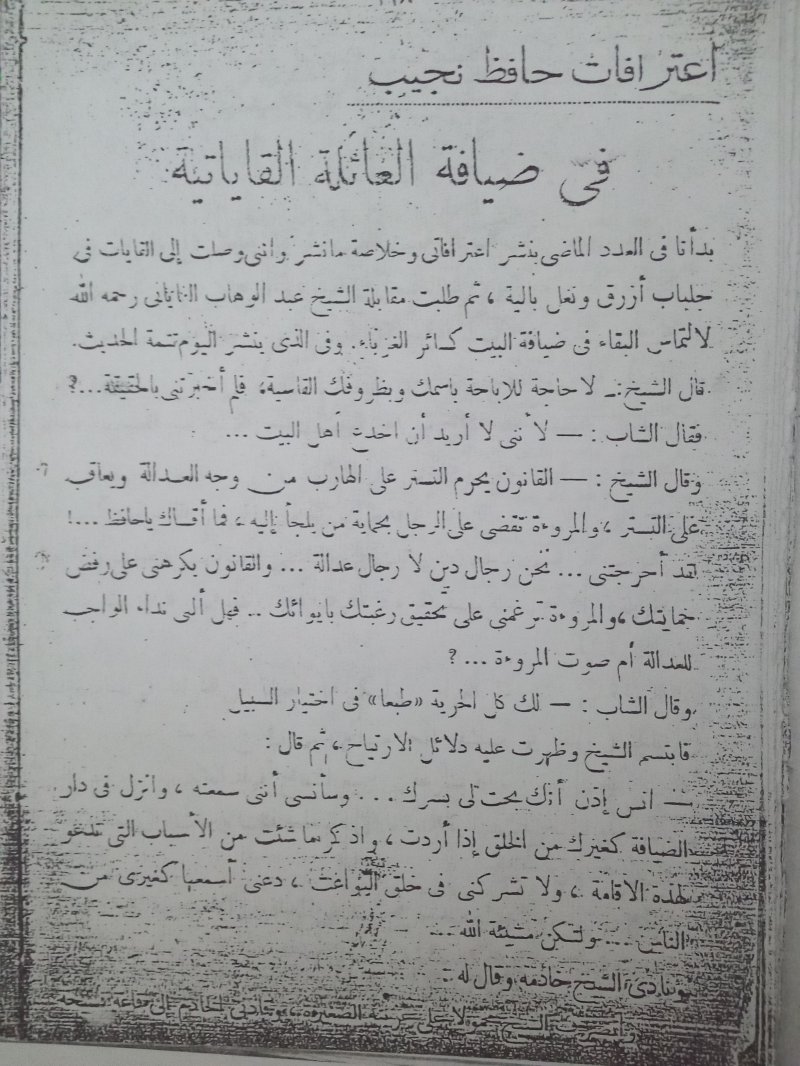 اعترافات حافظ نجيب
في ضيافة العائلة القاياتية
بدأنا فى العدد الماضى بنشر اعترافاتى وخلاصة مانشر وانى وصلت إلى القايات فى
جلباب أزرق ونعل بالية ، ثم طلبت مقابلة الشيخ عبد الوهاب القاياتى رحمه الله
لالتماس البقاء فى ضيافة البيت كسائر الغرباء. وفى الذى ينشر اليوم تتمة الحديث.
قال الشيخ :ـ لا حاجة للإباحة باسمك وبظروفك القاسية، فلم أخبرتنى بالحقيقة...؟
فقال الشاب : — لأننى لا أريد أن اخدع أهل البيت ...
وقال الشيخ : — القانون يحرم التستر على الهارب من وجه العدالة ويعاقب
على التستر ، والمروءة تقضى على الرجل بحماية من يلجأ إليه ، فما أقساك ياحافظ ...!
لقد أحرجتنى ... نحن رجال دين لا رجال عدالة ... والقانون يكرهنى على رفض
حمايتك ، والمروءة ترغمنى على تحقيق رغبتك بايوائك .. فهل ألبى نداء الواجب
للعدالة أم صوت المروءة ... ؟
وقال الشاب : — لك كل الحرية «طبعا» فى اختيار السبيل
فابتسم الشيخ وظهرت عليه دلائل الارتياح ، ثم قال :
— انس إذن أنك بحت لى بسرك ... وسأنسى أننى سمعته ، وانزل فى دار
الضيافة كغيرك من الخلق إذا أردت ، واذكر ما شئت من الأسباب التى تدعو
لهذه الاقامة ، ولا تشركنى فى خلق البواعث ، دعنى أسمعها كغيرى من
الناس ... ولتكن مشيئة الله ...
ونادى الشيخ خادمه وقال له :